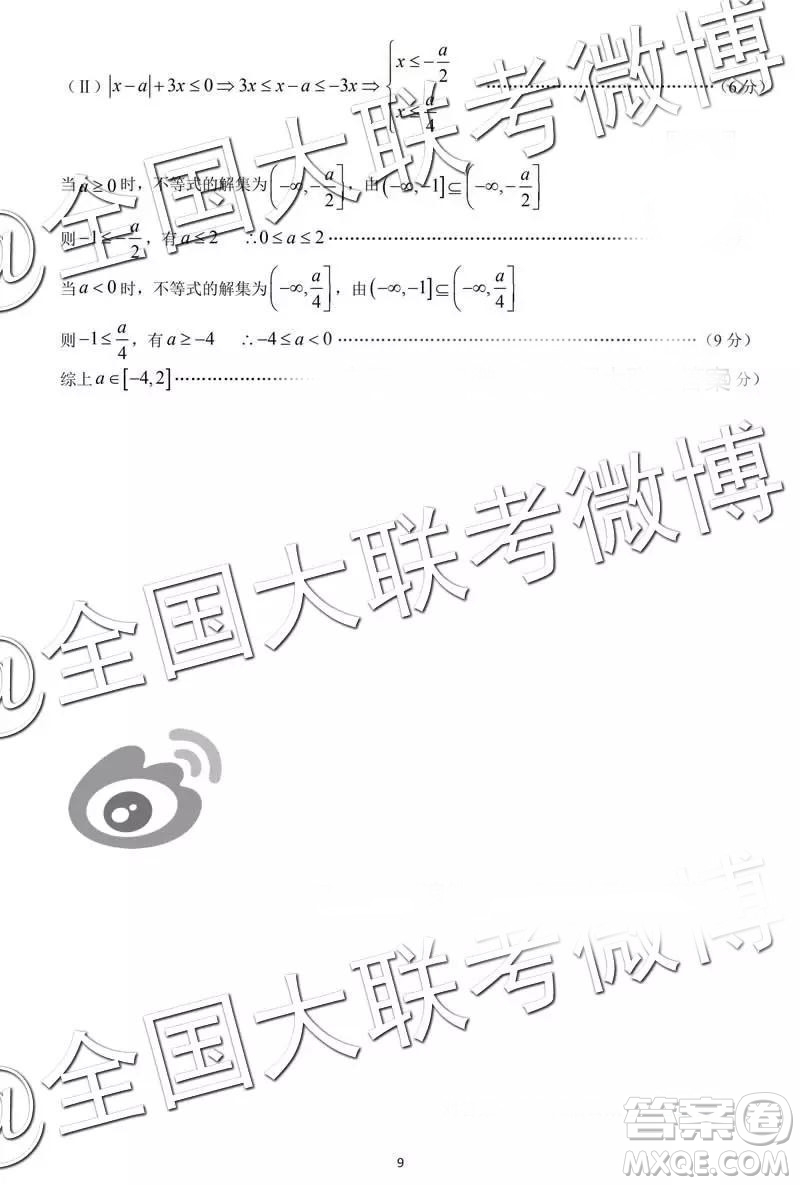 (Ⅱ) |x-a|+3x≤0⇒3x≤x-a≤-3x⇒{x≤-a/2 x≤a/4 ……………………………(6 分)
当 a≥0 时,不等式的解集为 (-∞,-a/2],由 (-∞,-1]⊆(-∞,-a/2]
则 -1≤-a/2,有 a≤2 ∴0≤a≤2……………………………
当 a<0 时,不等式的解集为 (-∞,a/4],由 (-∞,-1]⊆(-∞,a/4]
则 -1≤a/4,有 a≥-4 ∴-4≤a<0……………………………(9 分)
综上 a∈[-4,2]……………………………分)
@全国大联考微博
@全国大联考微博
@全国大联考微博
答案卷
MXQE.COM
9